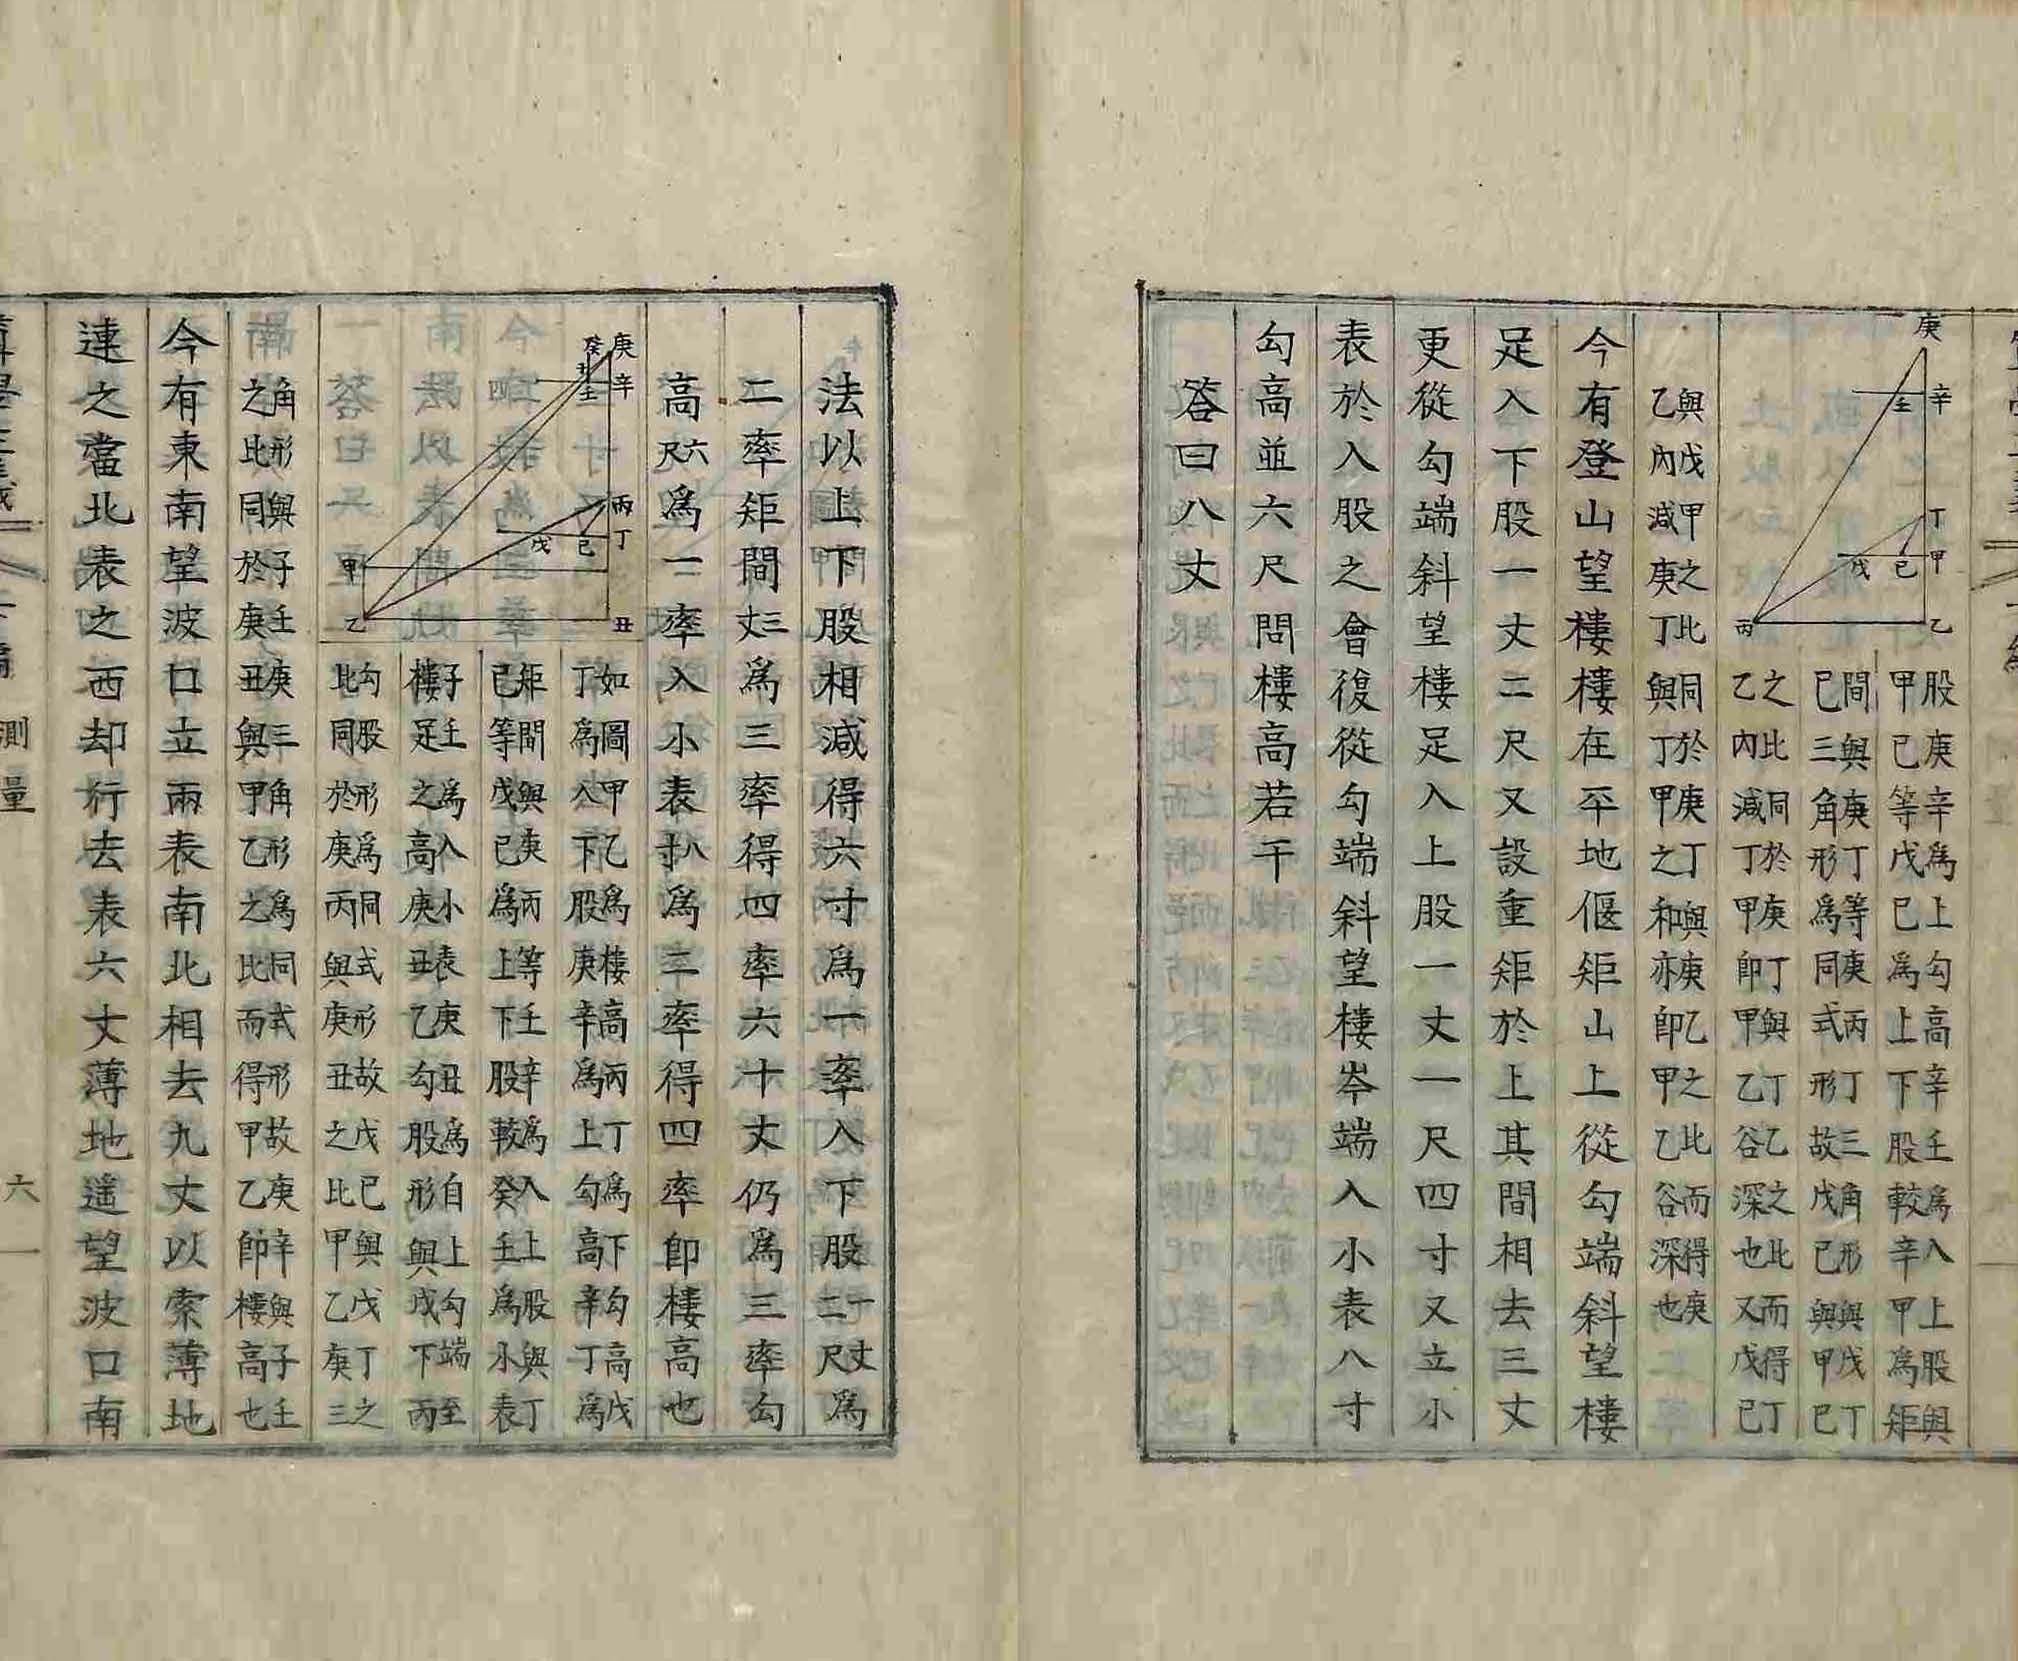 庚
辛
壬
丁
甲
戊
己
丙
乙
股庚辛爲上勾高辛壬爲入上股與
甲己等戊己爲上下股較辛甲爲矩
間與庚丁等庚丙丁三角形與戊丁
己三角形爲同式形故戊己與甲己
之比同於庚丁與丁乙之比而得丁
乙內減丁甲卽甲乙谷深也又戊己
與戊甲之比同於庚丁與庚乙之比而得庚
乙內減庚丁與丁甲之和亦卽甲乙谷深也
今有登山望樓樓在平地偃矩山上從勾端斜望樓
足入下股一丈二尺又設重矩於上其間相去三丈
更從勾端斜望樓足入上股一丈一尺四寸又立小
表於入股之會復從勾端斜望樓岑端入小表八寸
勾高並六尺問樓高若干
答曰八丈
法以上下股相減得六寸爲一率入下股一丈二尺爲
二率矩間三丈爲三率得四率六十丈仍爲三率勾
高六尺爲一率入小表八寸爲二率得四率卽樓高也
庚
癸
子
辛
壬
丙
丁
戊
己
甲
乙
丑
如圖甲乙爲樓高丙丁爲下勾高戊
丁爲入下股庚辛爲上勾高辛丁爲
矩間與庚丙等壬辛爲入上股與丁
己等戊己爲上下股較癸壬爲小表
子壬爲入小表庚丑爲自上勾端至
樓足之高庚丑乙勾股形與戊下丙
勾股形爲同式形故戊己與戊丁之
比同於庚丙與庚丑之比甲乙庚三
角形與子壬庚三角形爲同式形故庚辛與子壬
之比同於庚丑與甲乙之比而得甲乙卽樓高也
今有東南望波口立兩表南北相去九丈以索薄地
連之當北表之西却行去表六丈薄地遙望波口南
測量
六一